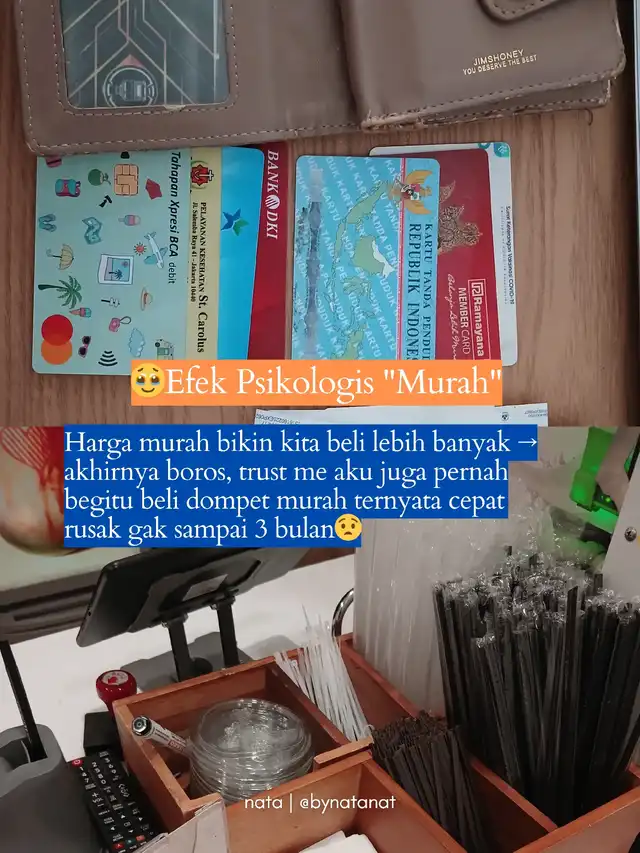 JIMSHONEY
YOU DESERVE THE BEST
Tahapan Xpresi BCA debit
PELAYANAN KESEHATAN St. Carolus
Jl. Salemba Raya 41 - Jakarta 10440
BANK DKI
KARTU TANDA PENDUDUK
REPUBLIK INDONE
Ramayana
MEMBER CARD
Belanja Lebih
🥹Efek Psikologis "Murah"
Harga murah bikin kita beli lebih banyak →
akhirnya boros, trust me aku juga pernah
begitu beli dompet murah ternyata cepat
rusak gak sampai 3 bulan😟
nata | @bynatanat